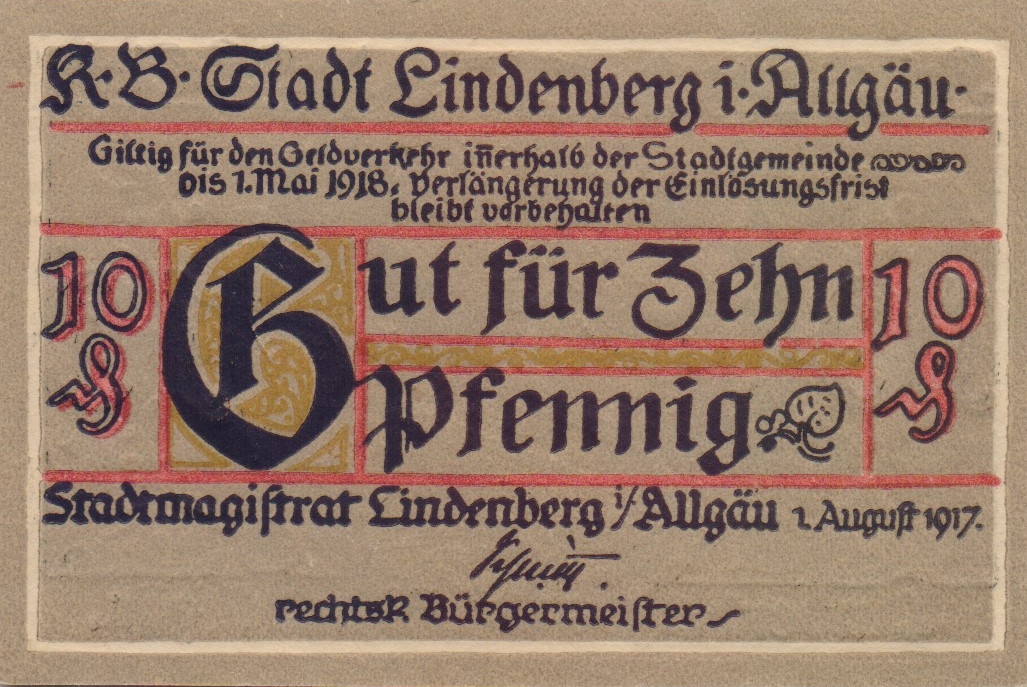 K. B. Stadt Lindenberg i. Allgäu.
Giltig für den Geldverkehr in̄erhalb der Stadtgemeinde
bis 1. Mai 1918. Verlängerung der Einlösungsfrist
bleibt vorbehalten
10 ₰ Gut für Zehn 10 ₰
Pfennig
Stadtmagiſtrat Lindenberg i/Allgäu 1. Auguſt 1917.
rechtsk. Bürgermeiſter